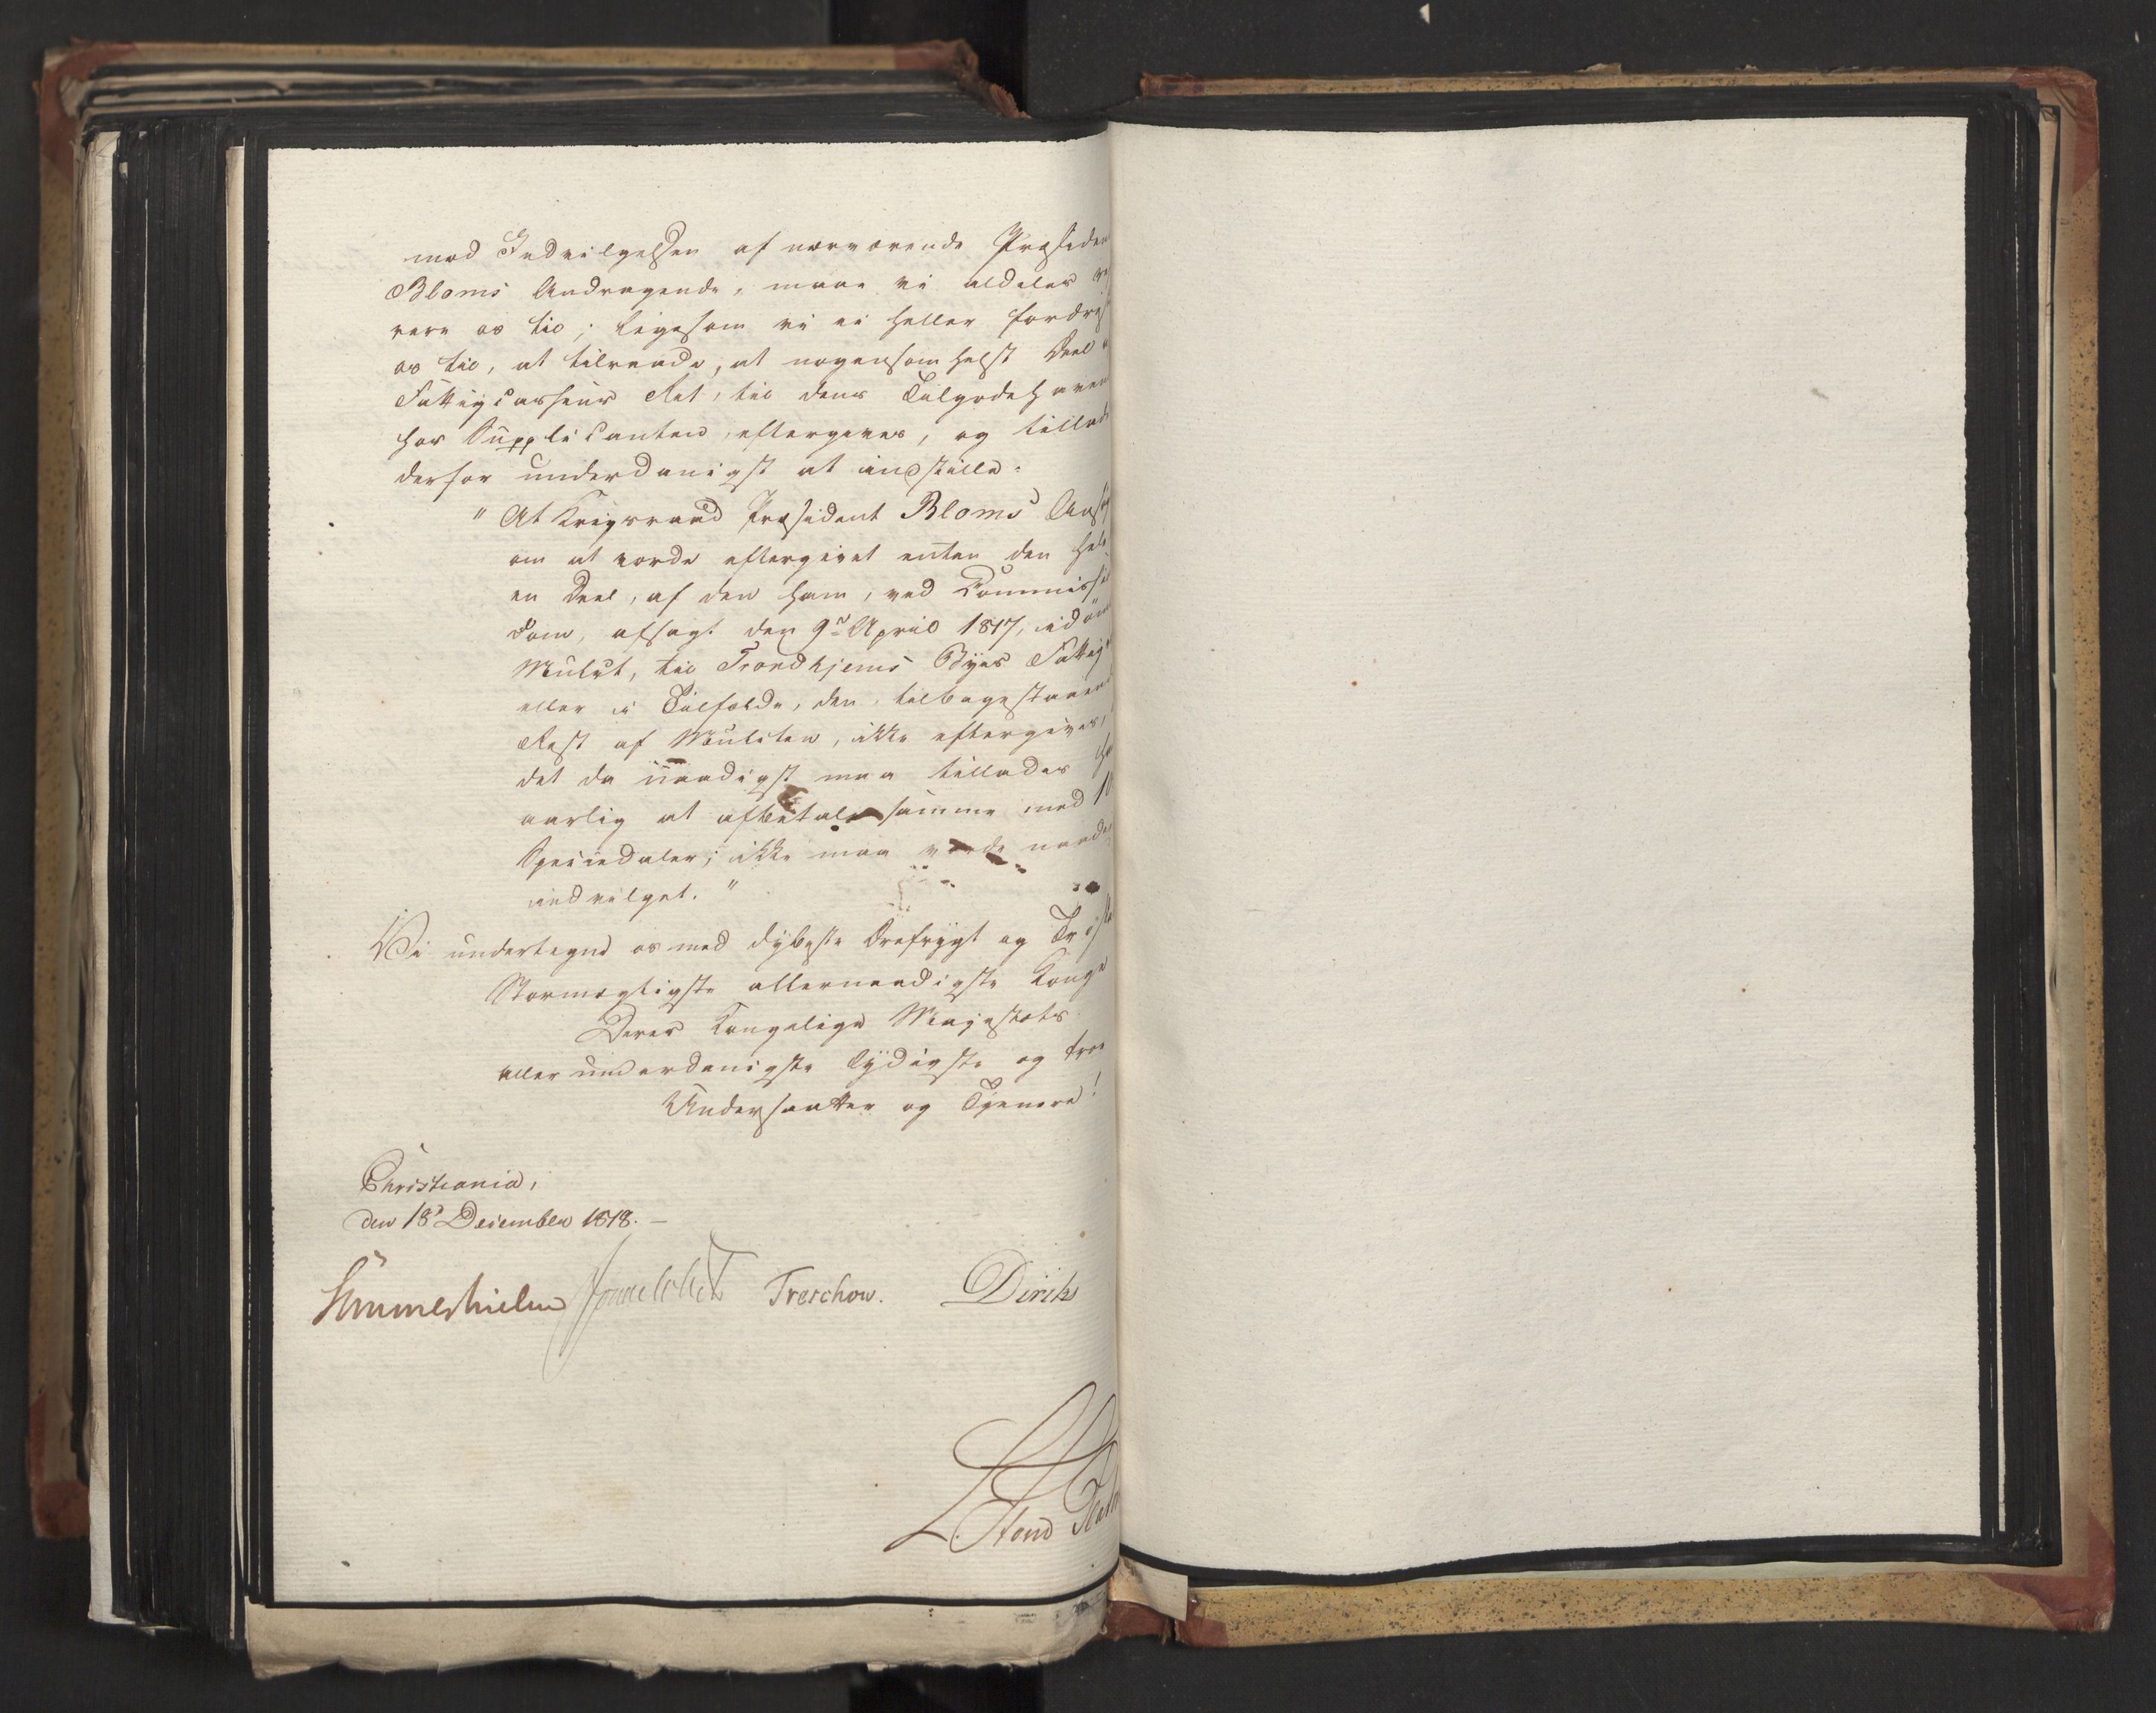 mod Indvilgelsen af nærværende Præsiden
Bloms Andragende, maae vi aldeles
være os til; ligesom vi ei heller fordrist
os til, at tilraade, at nogensomhelst Deel a
Fattigcassens Ret, til dens Tilgodehaven
hos Supplicanten, eftergives, og tillade
derfor underdanigst at indstille:
"At Krigsraad Præsident Bloms Ansøg
om at vorde eftergivet enten den hele
en Deel, af den ham, ved Commissi
Dom, afsagt den 9de April 1817, idøm
Mulct, til Trondhjems Byes Fattig
eller i Tilfælde, den tilbagestaaend
Rest af Mulcten, ikke eftergives,
det da naadigst maa tillades ha
aarlig at afbetale samme med 10
Speciedaler; ikke maa vorde naadi
indvilget."
Vi undertegne os med dybeste Ærefrygt og
Stormægtigste allernaadigste Konge
Deres Kongelige Majestæts
allerunderdanigste lydigste og troe
Undersaatter og Tjenere!
Christiania,
den 18d December 1818. —
Sommerhielm Treschow. Diriks